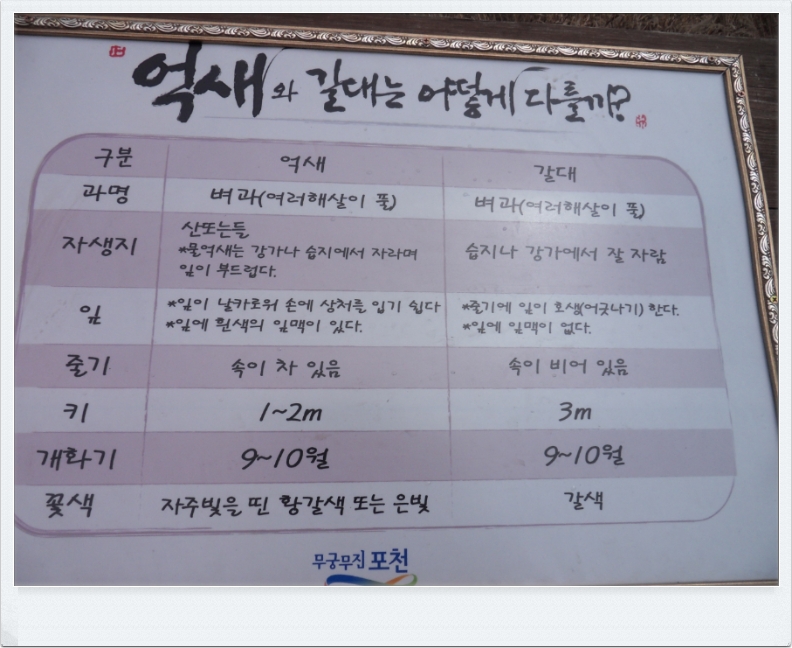 억새와 갈대는 어떻게 다를까?
구분 억새 갈대
과명 벼과(여러해살이 풀) 벼과(여러해살이 풀)
자생지 산또는들 습지나 강가에서 잘 자람
*물억새는 강가나 습지에서 자라며
잎이 부드럽다.
잎 *잎이 날카로워 손에 상처를 입기 쉽다 *줄기에 잎이 호생(어긋나기) 한다.
*잎에 흰색의 잎맥이 있다. *잎에 잎맥이 없다.
줄기 속이 차 있음 속이 비어 있음
키 1~2m 3m
개화기 9~10월 9~10월
꽃색 자주빛을 띤 황갈색 또는 은빛 갈색
무궁무진 포천